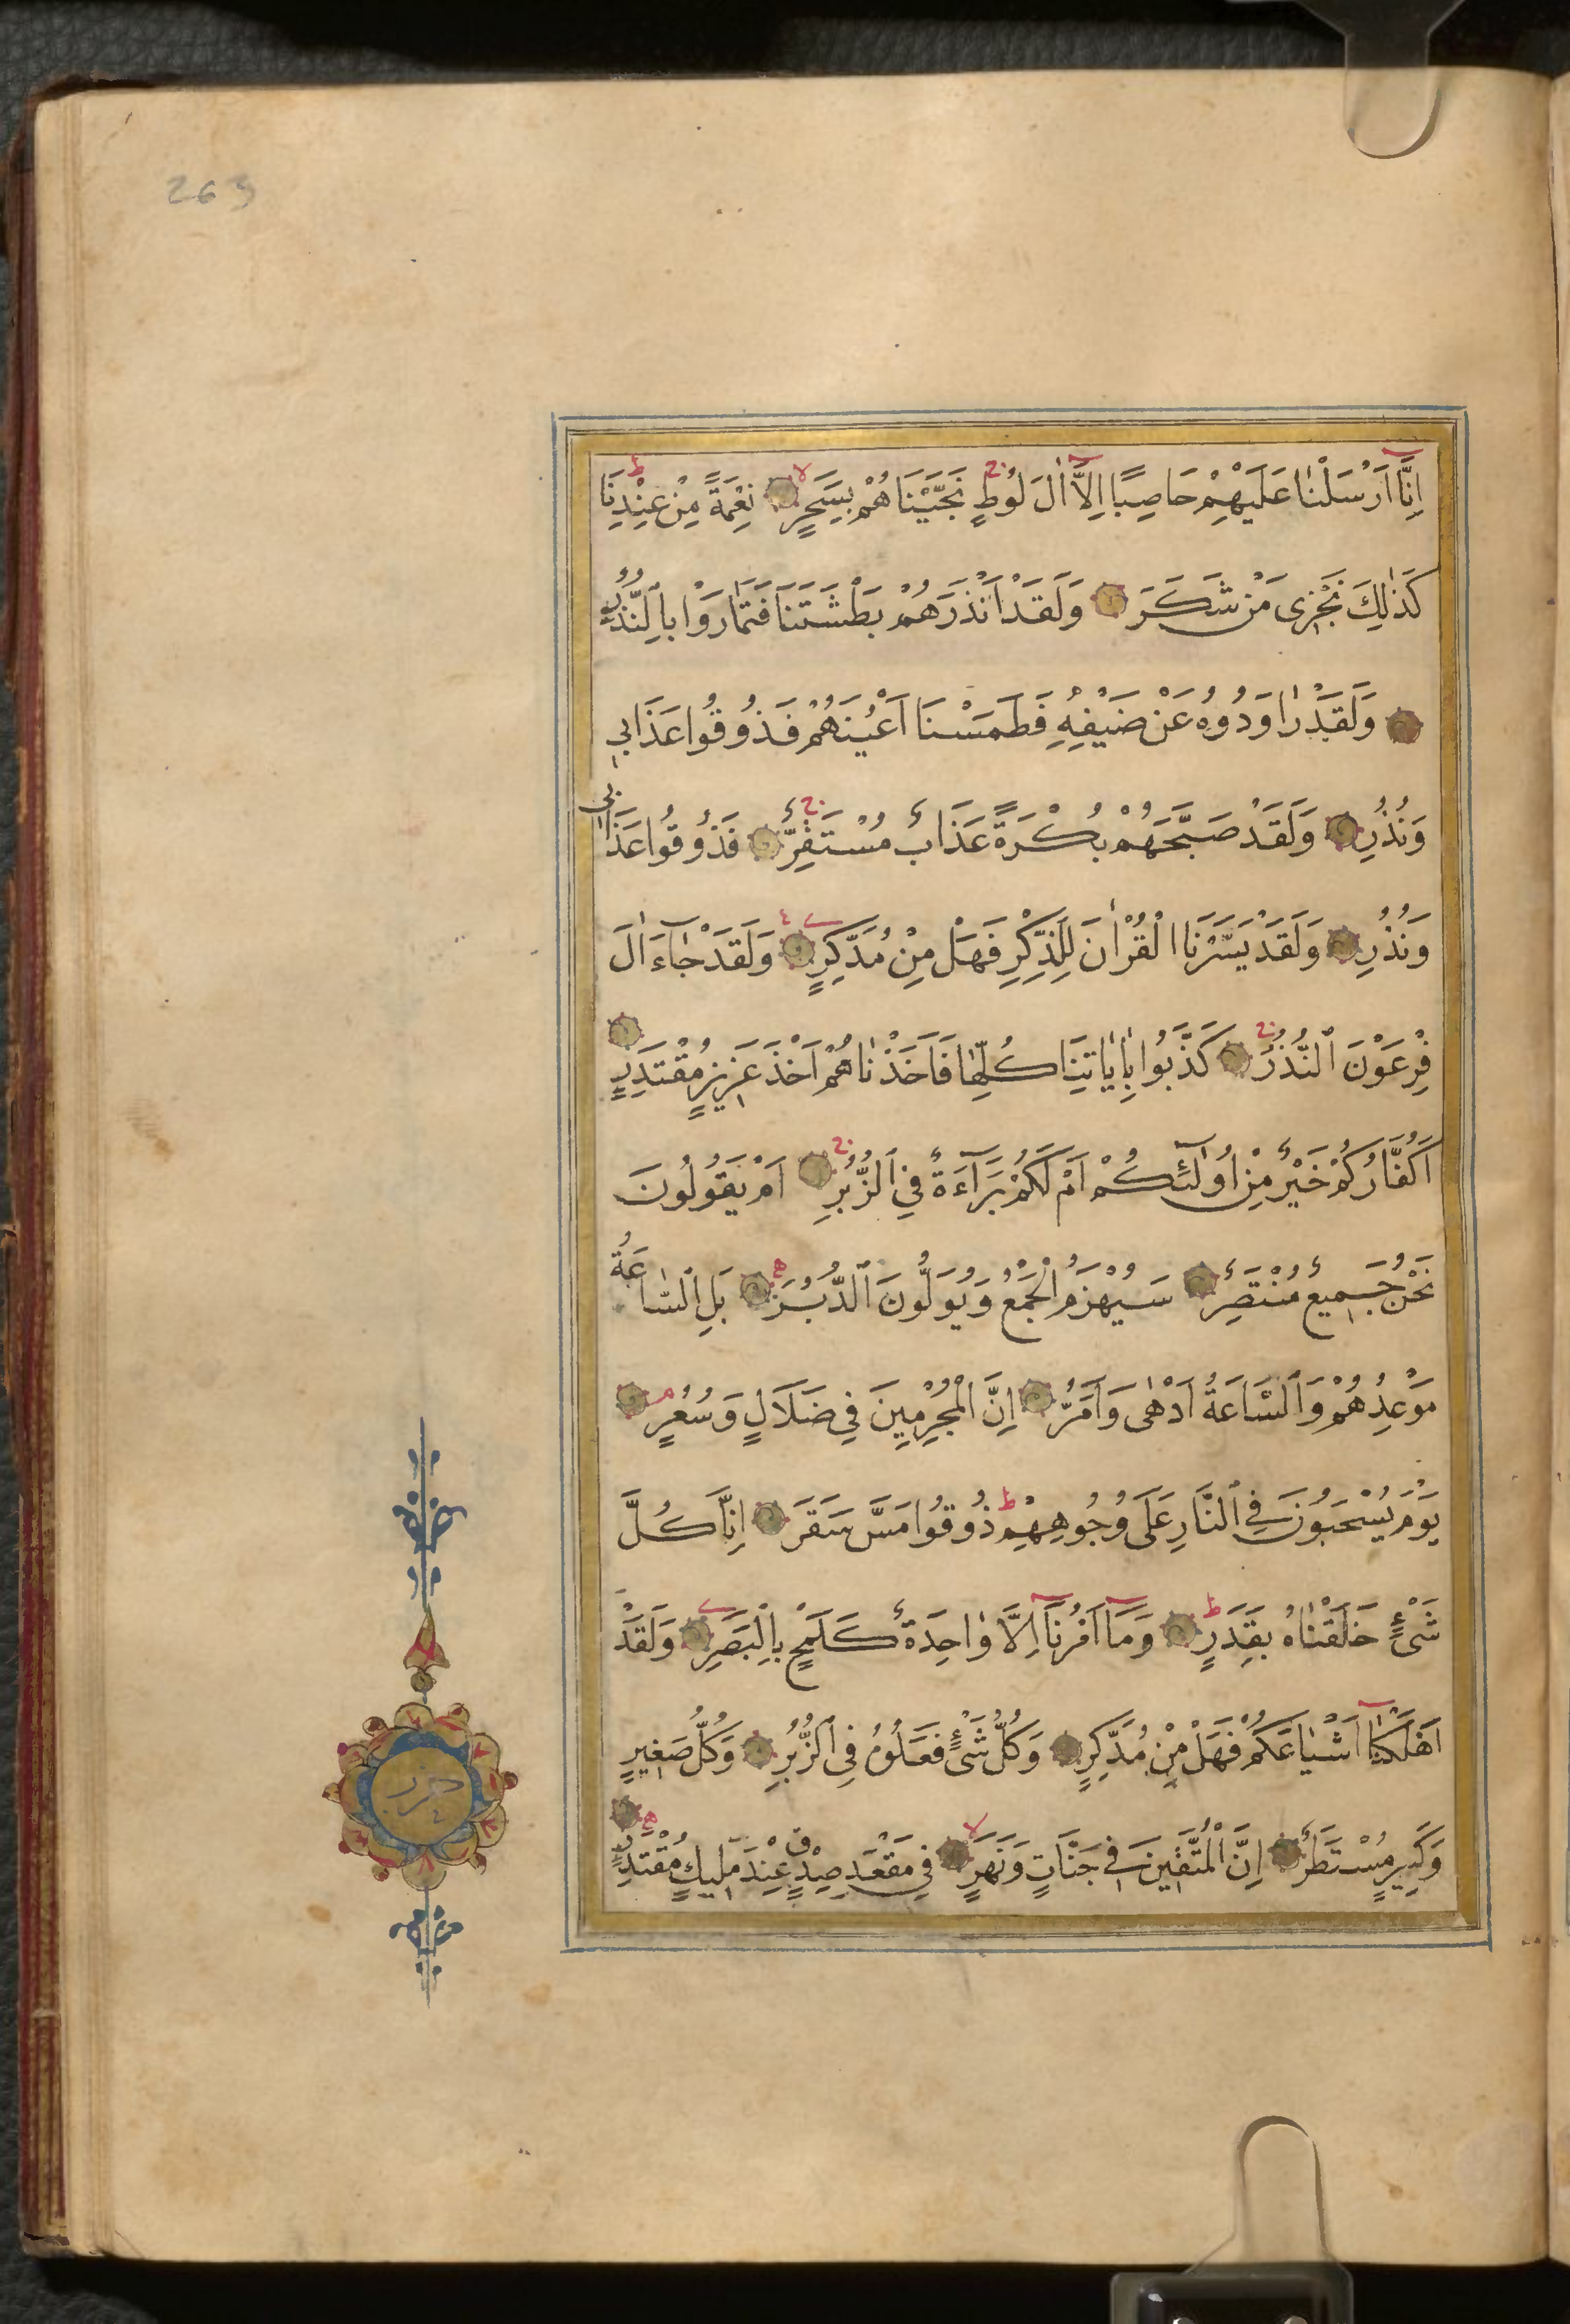 263
اِنَّا اَرْسَلْنَا عَلَيْهِمْ حَاصِبًا اِلَّا اٰلَ لُوطٍ نَجَّيْنَاهُمْ بِسَحَرٍ نِعْمَةً مِنْ عِنْدِنَا
كَذٰلِكَ نَجْزِى مَنْ شَكَرَ وَلَقَدْ اَنْذَرَهُمْ بَطْشَتَنَا فَتَمَارَوْا بِالنُّذُرِ
وَلَقَدْ رَاوَدُوهُ عَنْ ضَيْفِهِ فَطَمَسْنَا اَعْيُنَهُمْ فَذُوقُوا عَذَابِي
وَنُذُرِ وَلَقَدْ صَبَّحَهُمْ بُكْرَةً عَذَابٌ مُسْتَقِرٌّ فَذُوقُوا عَذَابِي
وَنُذُرِ وَلَقَدْ يَسَّرْنَا الْقُرْاٰنَ لِلذِّكْرِ فَهَلْ مِنْ مُدَّكِرٍ وَلَقَدْ جَاءَ اٰلَ
فِرْعَوْنَ النُّذُرُ كَذَّبُوا بِاٰيَاتِنَا كُلِّهَا فَاَخَذْنَاهُمْ اَخْذَ عَزِيزٍ مُقْتَدِرٍ
اَكُفَّارُكُمْ خَيْرٌ مِنْ اُولٰئِكُمْ اَمْ لَكُمْ بَرَاءَةٌ فِي الزُّبُرِ اَمْ يَقُولُونَ
نَحْنُ جَمِيعٌ مُنْتَصِرٌ سَيُهْزَمُ الْجَمْعُ وَيُوَلُّونَ الدُّبُرَ بَلِ السَّاعَةُ
مَوْعِدُهُمْ وَالسَّاعَةُ اَدْهٰى وَاَمَرُّ اِنَّ الْمُجْرِمِينَ فِي ضَلَالٍ وَسُعُرٍ
يَوْمَ يُسْحَبُونَ فِي النَّارِ عَلَى وُجُوهِهِمْ ذُوقُوا مَسَّ سَقَرَ اِنَّا كُلَّ
شَىْءٍ خَلَقْنَاهُ بِقَدَرٍ وَمَا اَمْرُنَا اِلَّا وٰاحِدَةٌ كَلَمْحٍ بِالْبَصَرِ وَلَقَدْ
اَهْلَكْنَا اَشْيَاعَكُمْ فَهَلْ مِنْ مُدَّكِرٍ وَكُلُّ شَىْءٍ فَعَلُوهُ فِي الزُّبُرِ وَكُلُّ صَغِيرٍ
وَكَبِيرٍ مُسْتَطَرٌ اِنَّ الْمُتَّقِينَ فِي جَنَّاتٍ وَنَهَرٍ فِي مَقْعَدِ صِدْقٍ عِنْدَ مَلِيكٍ مُقْتَدِرٍ
حزب